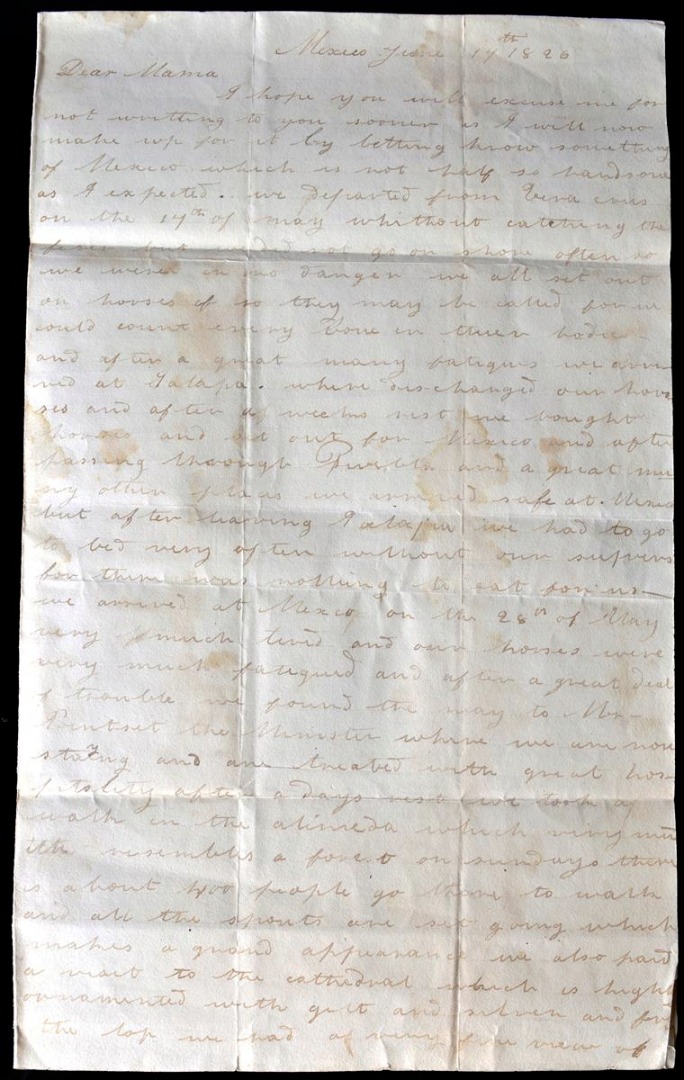 Mexico June 17th 1826
Dear Mama
I hope you will excuse me for
not writting to you sooner as I will now
make up for it by letting know something
of Mexico which is not half so handsome
as I expected. we departed from Vera crus
on the 17th of may whithout catching the
fever but we did not go on shore often so
we were in no danger we all set out
on horses if so they may be called for we
could count every bone in their bodie
and after a great many fatigues we arri
ved at Jalapa. where discharged our hor
ses and after a weeks rest we bought
horses and set out for Mexico and after
passing through Puebla and a great ma
ny other places we arrived safe at Mexico
but after leaving Jalapa we had to go
to bed very often without our suppers
for there was nothing to eat for us
we arrived at Mexico on the 28th of May
very much tired and our horses were
very much fatigued and after a great deal
of trouble we found the way to Mr
Poinset the Minister where we are now
staying and are treated with great hos
pitality after a days rest we took a
walk in the alimeda which very mu
ch resembles a forest on sundays there
is about 400 people go there to walk
and all the spouts are set going which
makes a grand appearance we also paid
a visit to the cathedral which is highly
ornamented with gilt and silver and from
the top we had a very fine view of